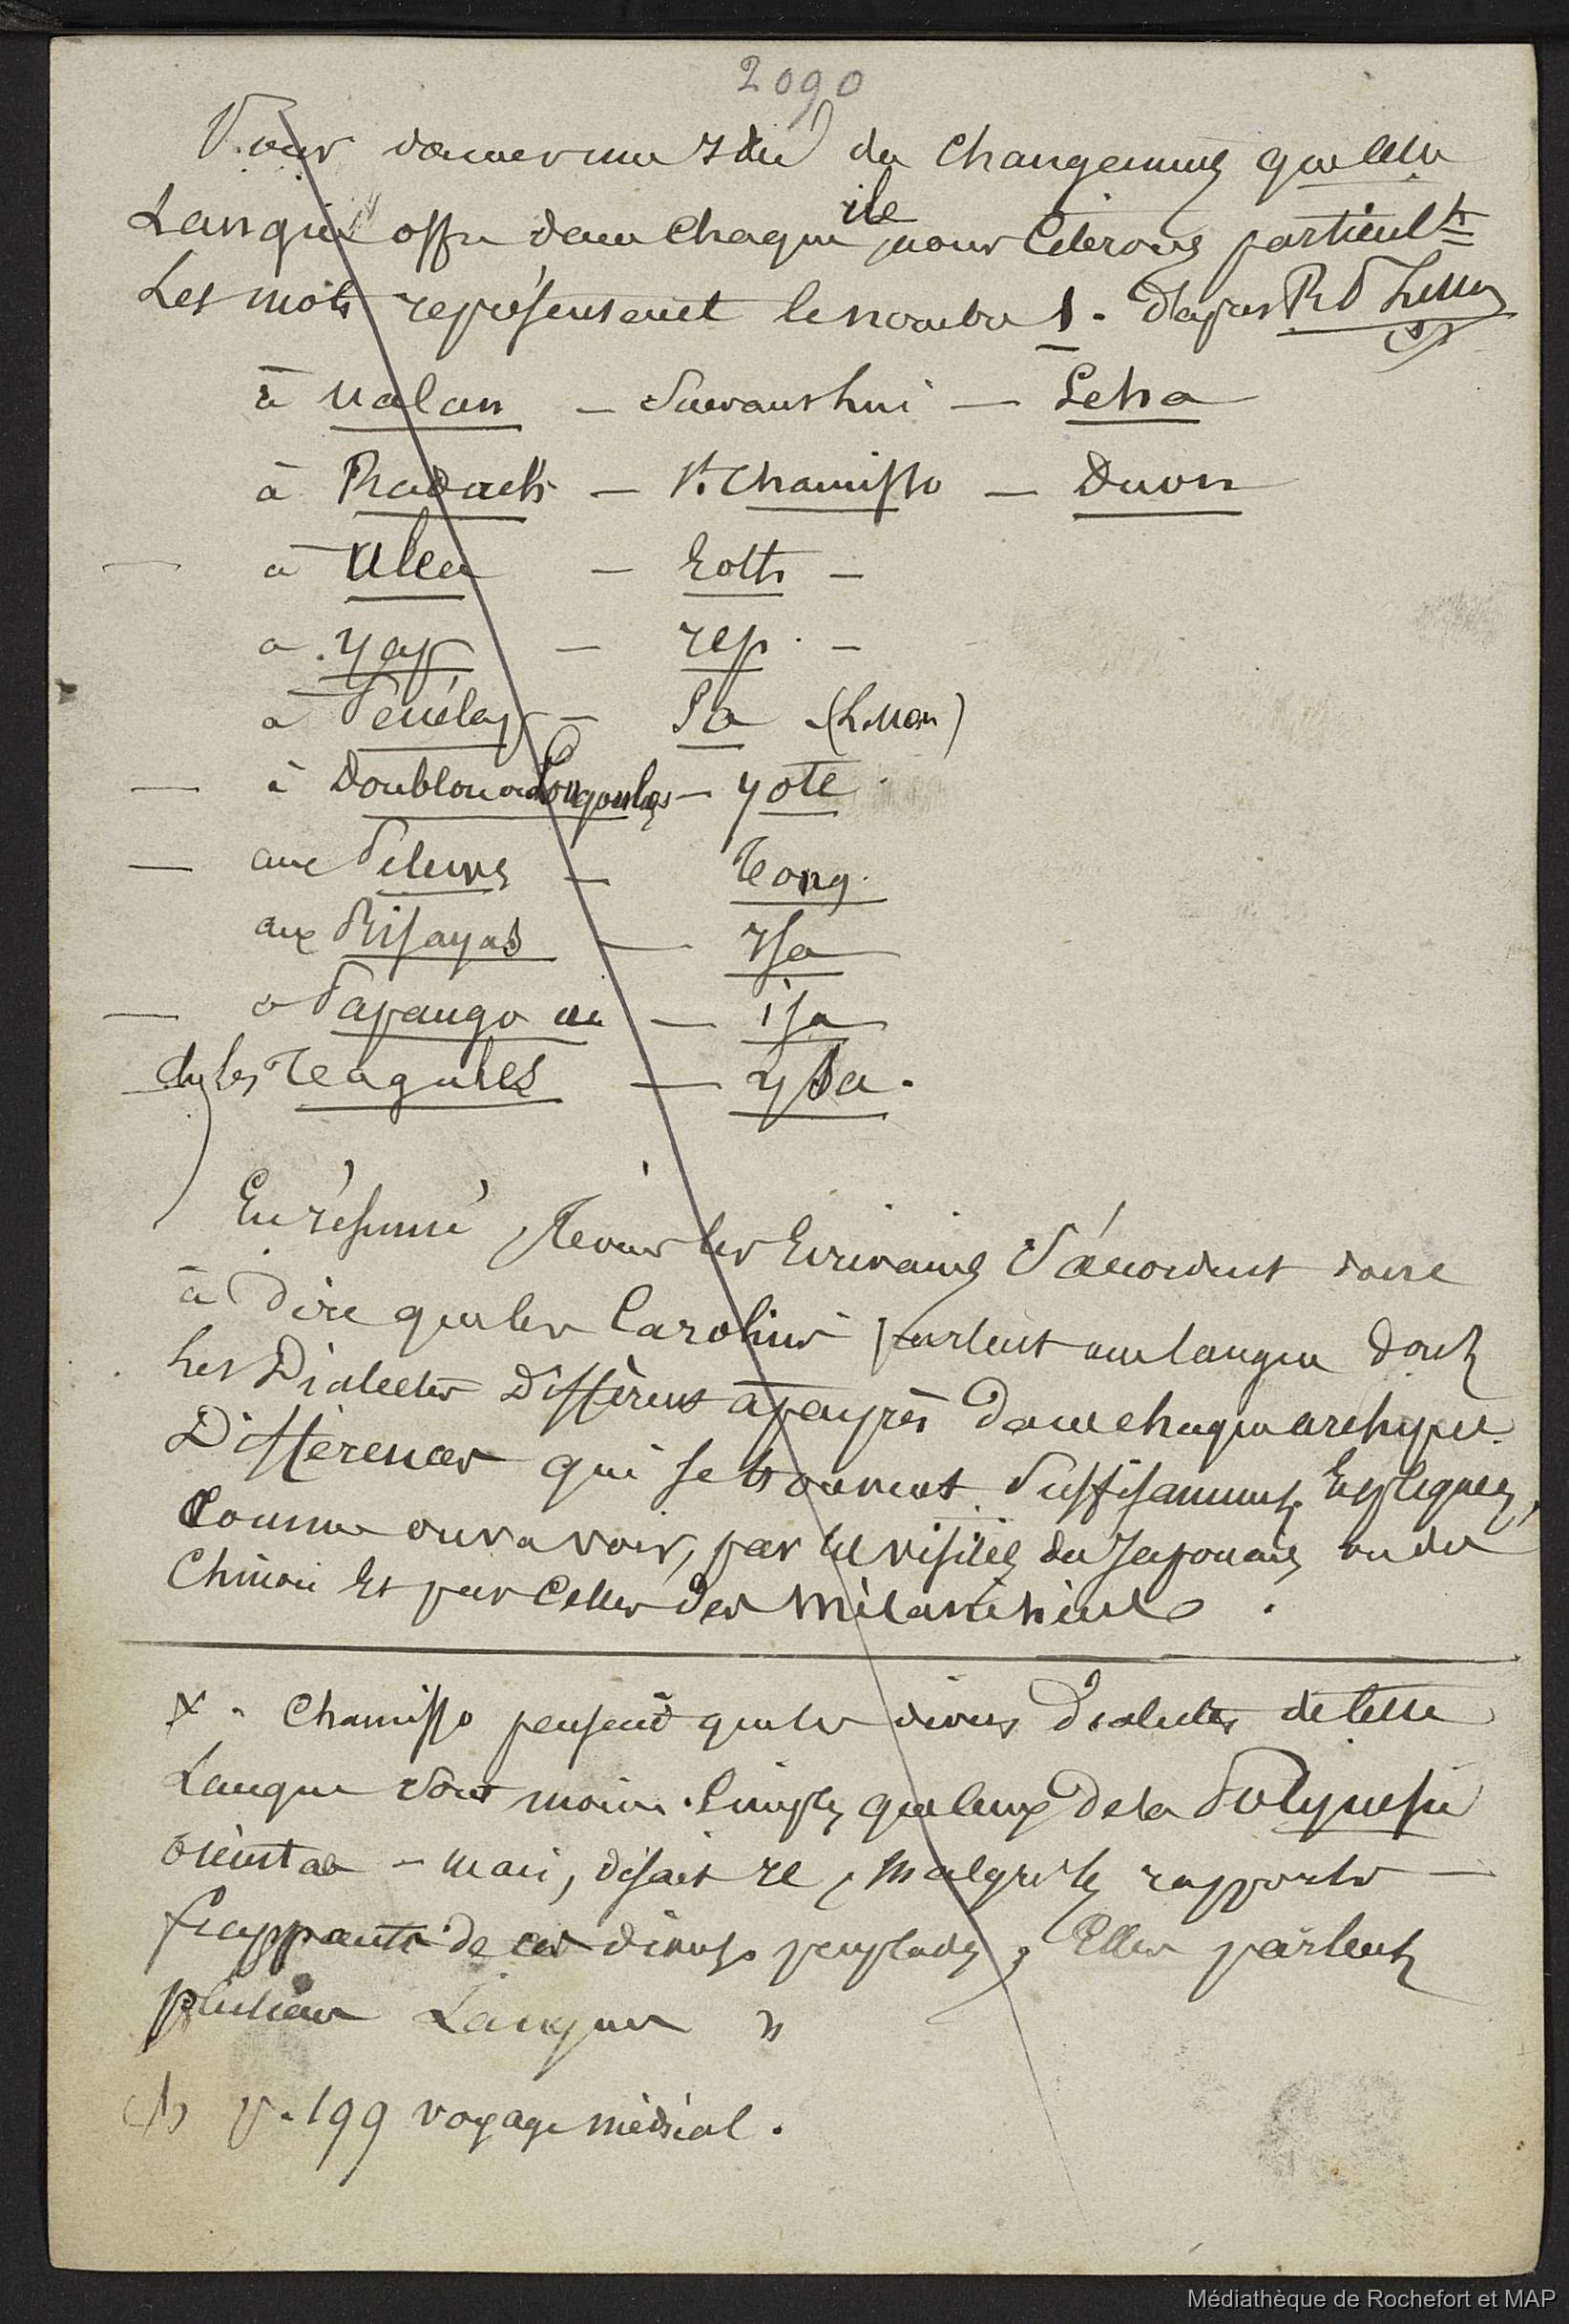 2090
Pour donner une Idée des changements que cette
Langue offre dans chaque île, nous citerons particult
Les mots représentant le nombre 1. d'après R P Lesson
(1)
à Ualan — suivant lui — Leha
à Radack — st. Chamisso — Duon
— à Ulea — Eoth —
a yap — rep. —
à Pénélap — Sa (Lesson)
— à Doublon ou Lougoulous — yote
— aux Pelews — Tong.
aux Bisayas — Isa
— à Papango ou — isa
chez les Tagales — ysa.
En résumé, Tous les Ecrivains s'accordent donc
à dire que les Carolins parlent une langue dont
Les Dialectes Diffèrent à peu près dans chaque archipel.
Différences qui se trouvent suffisamment Expliquées,
Comme on va voir, par les visites des Japonais ou des
Chinois Et par Celles des Mélanésiens.
x. Chamisso pensait que les divers Dialectes de cette
Langue sont moins simples que ceux de la Polynésie
orientale - mais, disait il, malgré les rapports —
frappants de ces diverses peuplades, Elles parlent
plusieurs Langues "
(1) p. 199 voyage médical.
Médiathèque de Rochefort et MAP